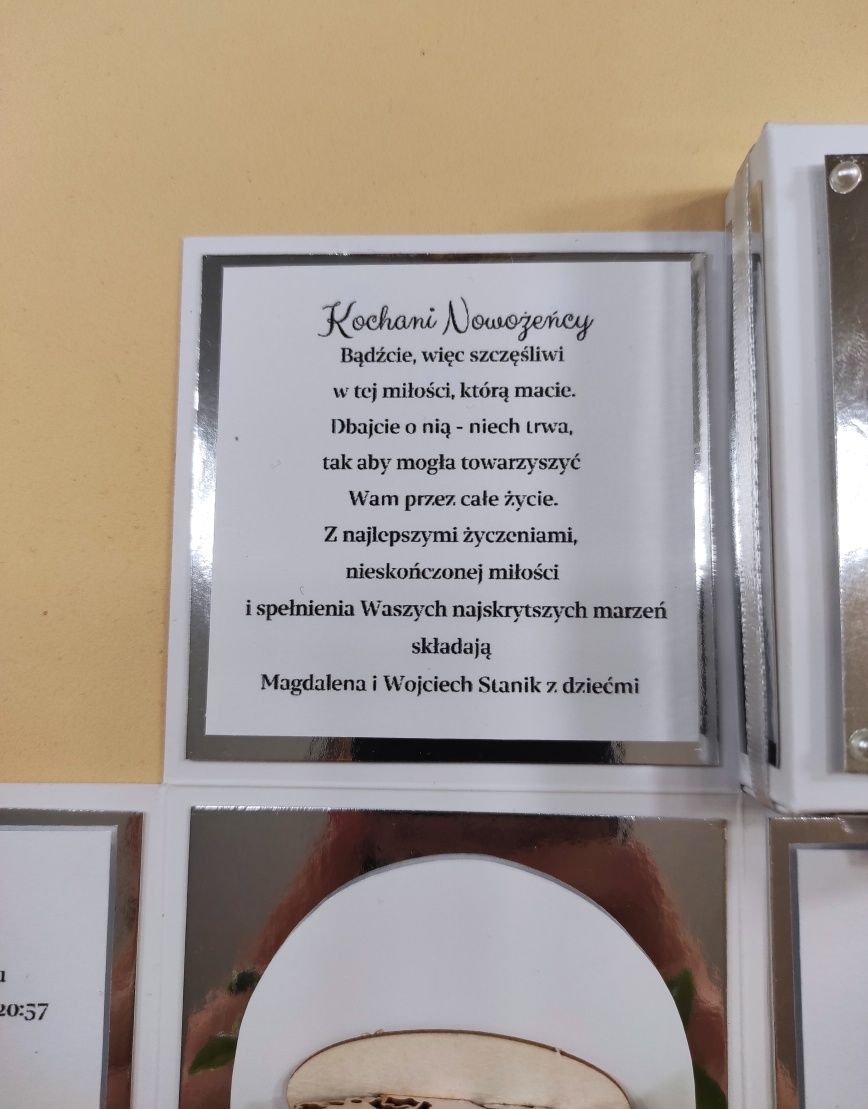 Kochani Nowożeńcy
Bądźcie, więc szczęśliwi
w tej miłości, którą macie.
Dbajcie o nią - niech trwa,
tak aby mogła towarzyszyć
Wam przez całe życie.
Z najlepszymi życzeniami,
nieskończonej miłości
i spełnienia Waszych najskrytszych marzeń
składają
Magdalena i Wojciech Stanik z dziećmi
20:57